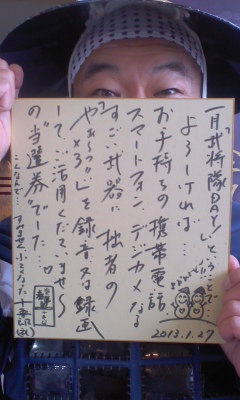 一月「武将隊DAY!」ということで…
よろしければ…
お手持ちの携帯電話、
スマートフォン、デジカメなる
すごい武器に 拙者の
「やぁ〜っ!」を録音又は録画
して、ご活用くださいませ〜
の「当選券」でした…
こんなんで…
2013.1.27